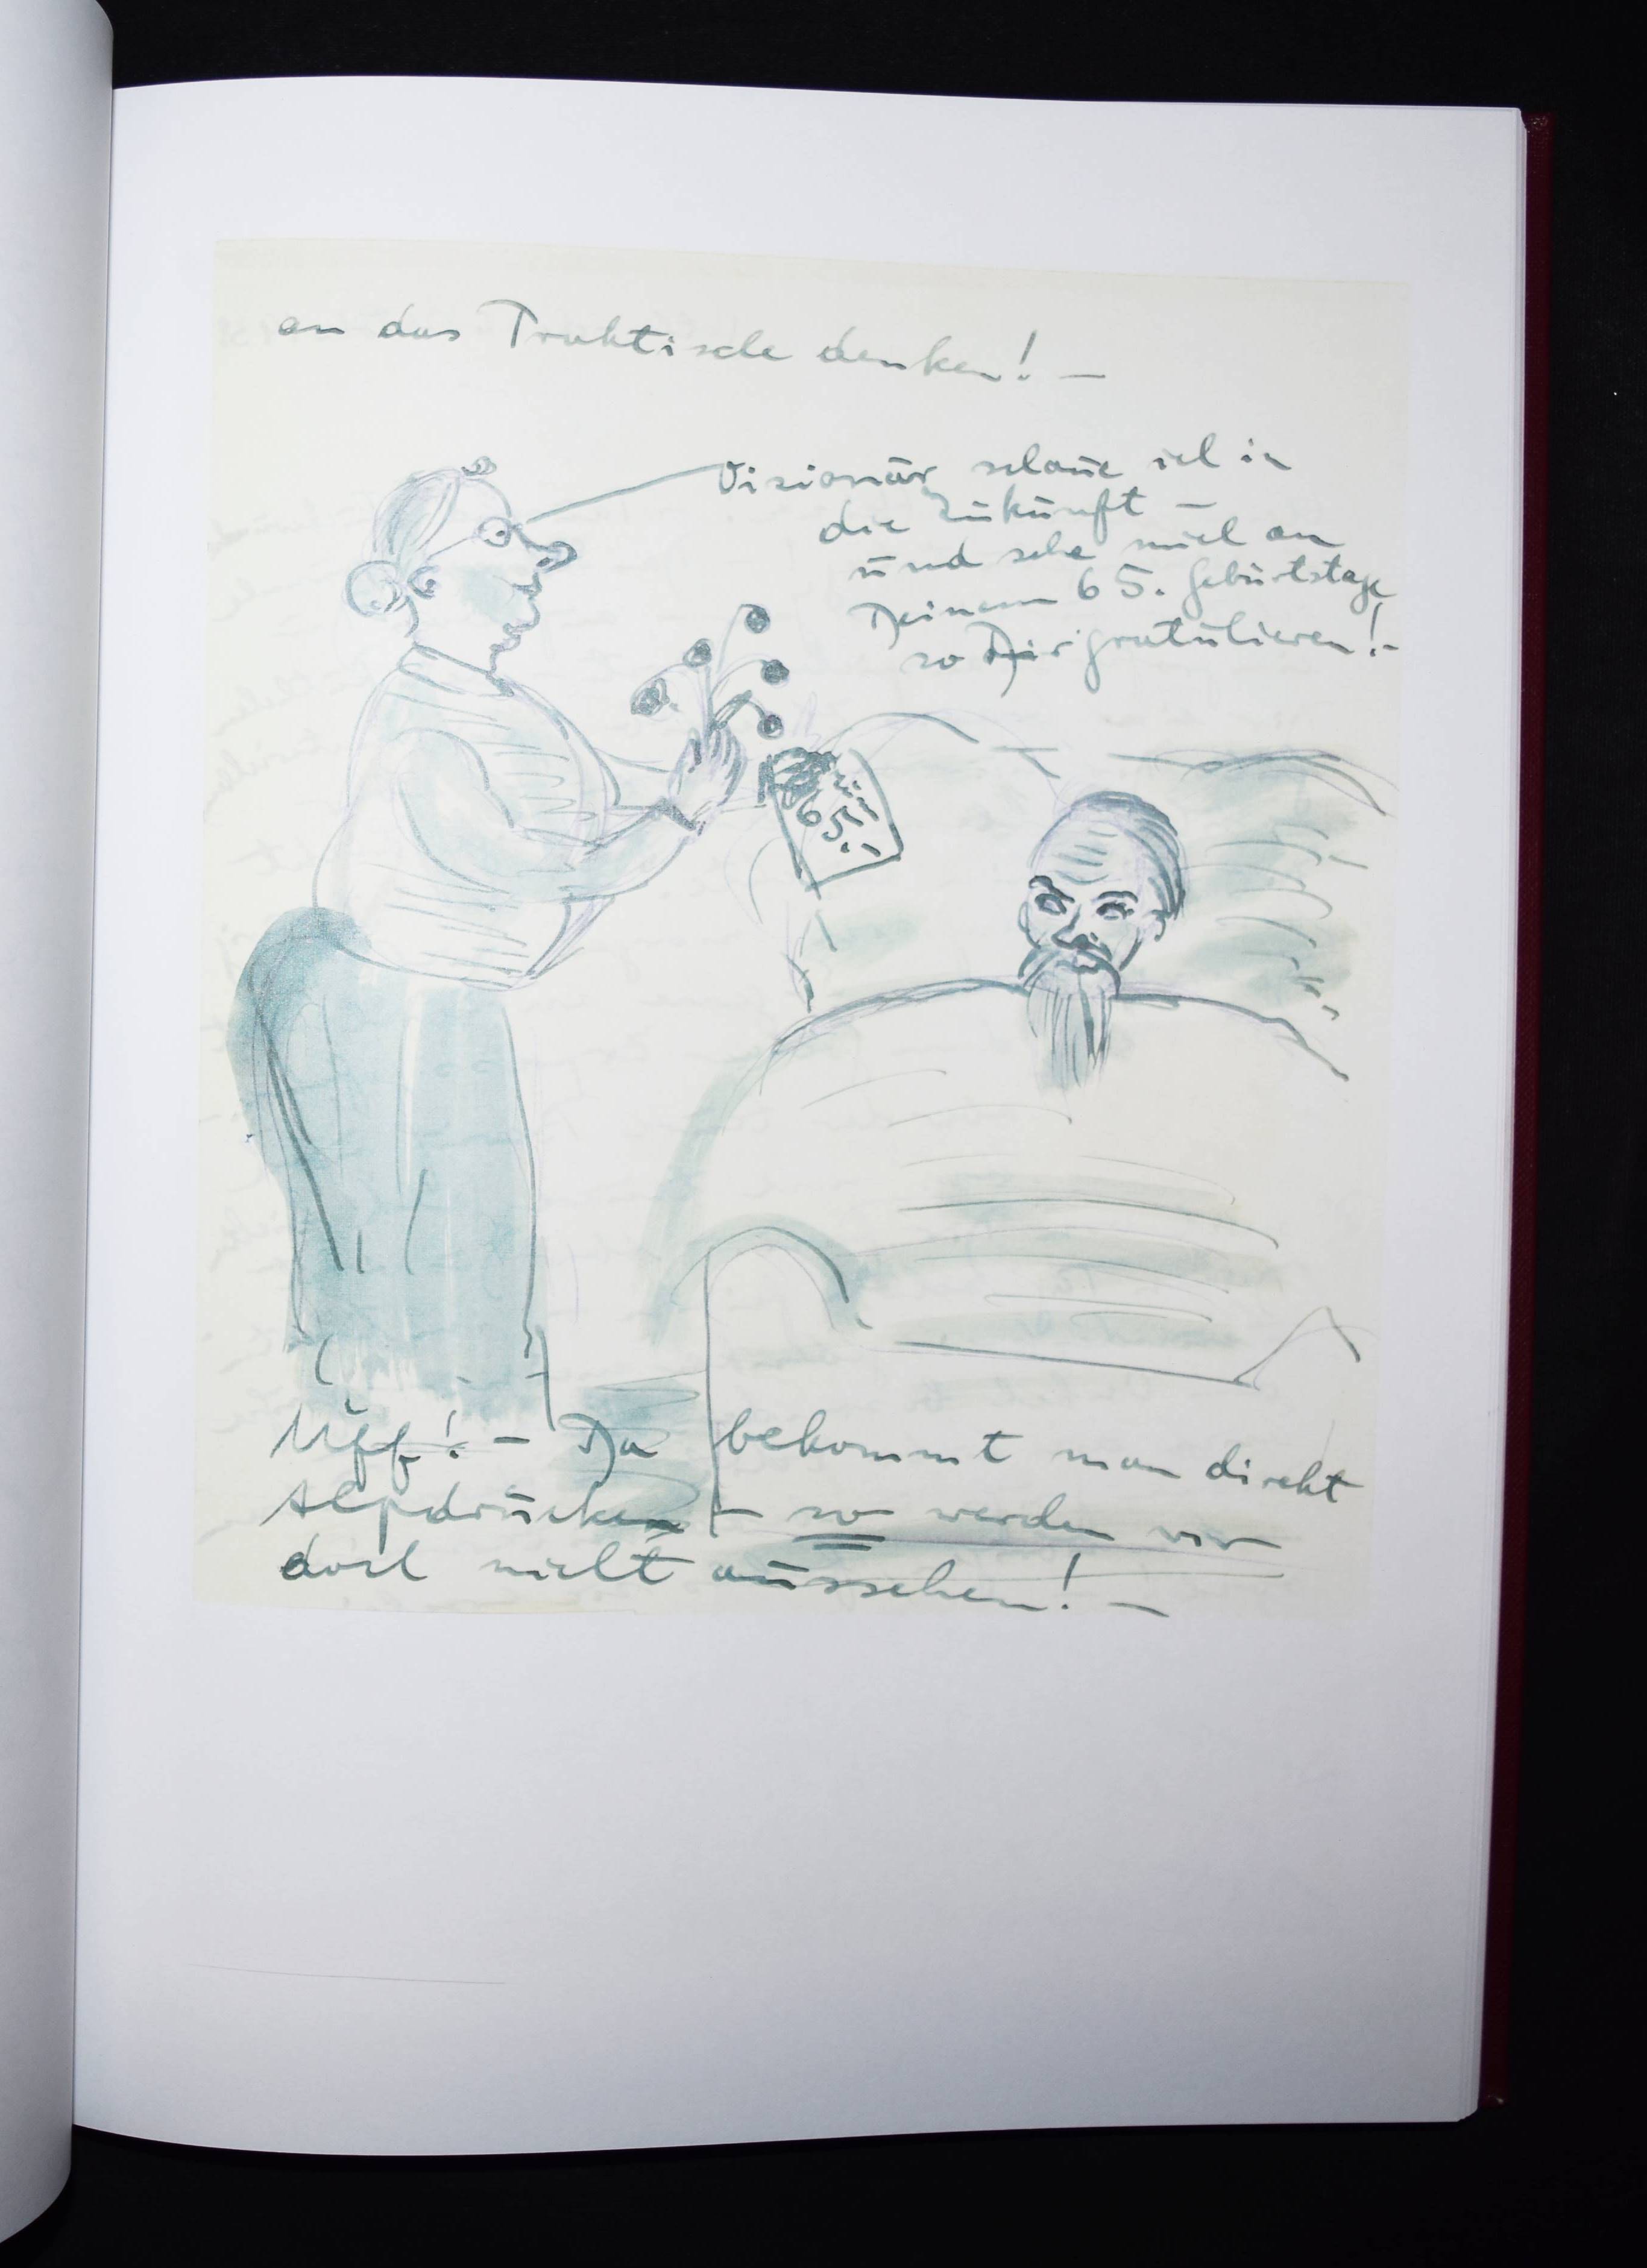 an das Praktische denken! –
Visionär schaue ich in
die Zukunft –
und sehe mich an
Deinem 65. Geburtstage
so Dir gratulieren! –
65.–
Uff! – Da bekommt man direkt
Alpdrücken – so werden wir
doch nicht aussehen! –